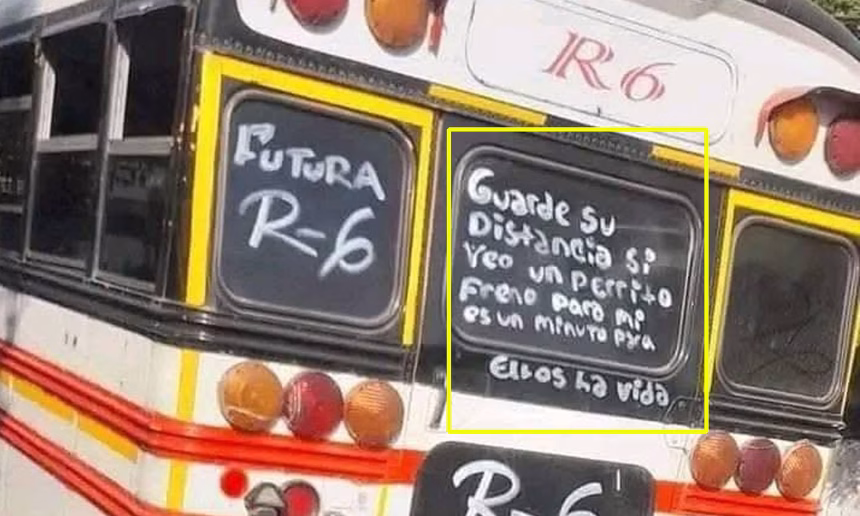 R6
FUTURA
R-6
Guarde su
Distancia si
veo un perrito
Freno para mi
es un minuto para
Ellos la vida
R-6